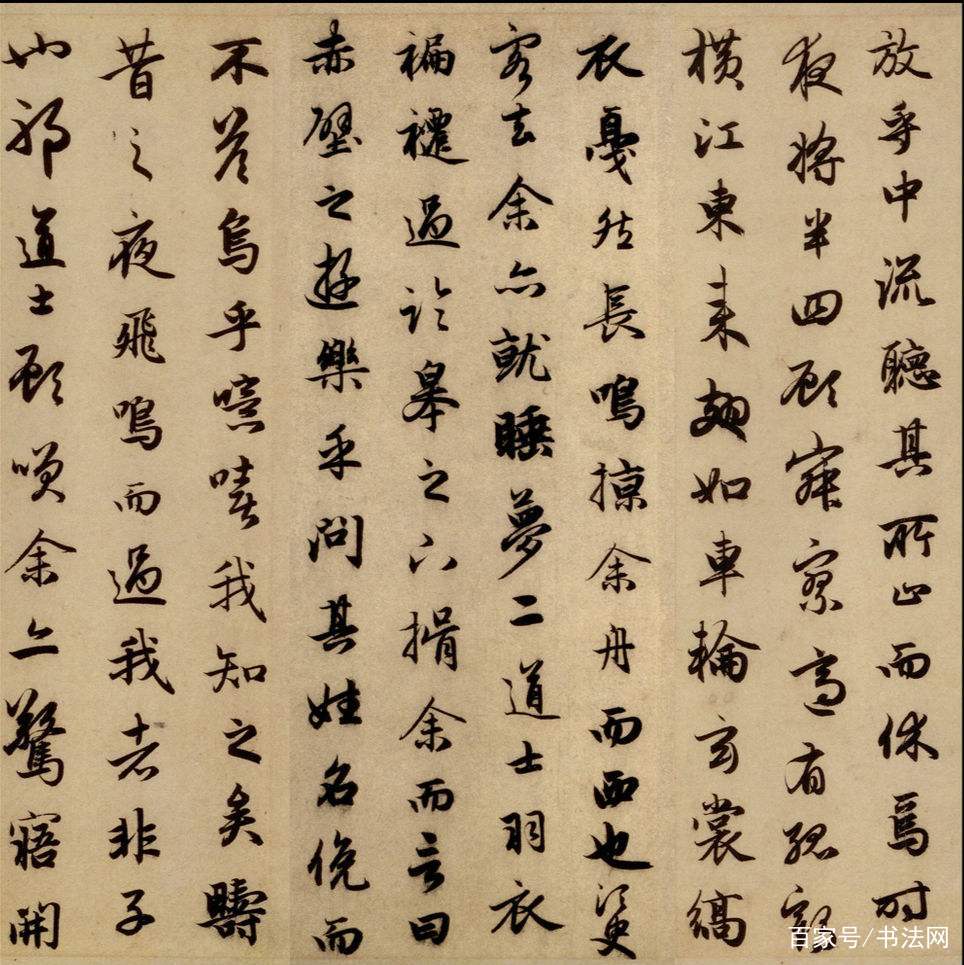 放乎中流聽其所止而休焉時
夜將半四顧寂寥適有孤鶴
橫江東來翅如車輪玄裳縞
衣戛然長鳴掠余舟而西也須臾
客去余亦就睡夢二道士羽衣
褊褼過臨皋之下揖余而言曰
赤壁之遊樂乎問其姓名俛而
不答烏乎噫嘻我知之矣疇
昔之夜飛鳴而過我者非子
也邪道士顧咲余亦驚寤開
百家号/书法网